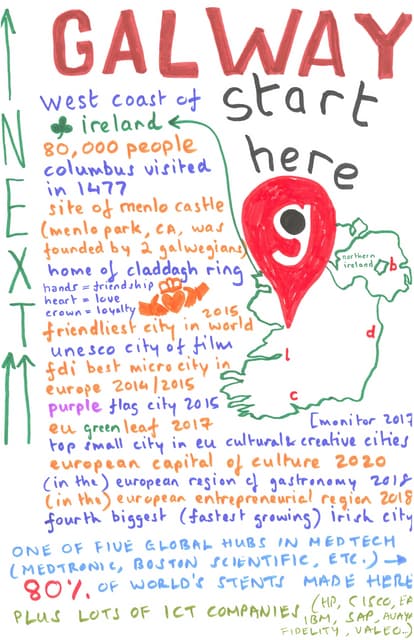 GALWAY
start
here
NEXT
west coast of
ireland
80,000 people
columbus visited
in 1477
site of menlo castle
(menlo park, ca, was
founded by 2 galwegians)
home of claddagh ring
hands = friendship
heart = love
crown = loyalty
2015
friendliest city in world
unesco city of film
fdi best micro city in
europe 2014/2015
purple flag city 2015
eu green leaf 2017
[monitor 2017
top small city in eu cultural & creative cities
european capital of culture 2020
(in the) european region of gastronomy 2018
(in the) european entrepreneurial region 2018
fourth biggest (fastest growing) irish city
ONE OF FIVE GLOBAL HUBS IN MEDTECH
(MEDTRONIC, BOSTON SCIENTIFIC, ETC.)
80% OF WORLD'S STENTS MADE HERE
PLUS LOTS OF ICT COMPANIES (HP, CISCO, EA
IBM, SAP, AVAYA
FIDELITY, VALEO.)
g
northern
ireland
b
d
l
c